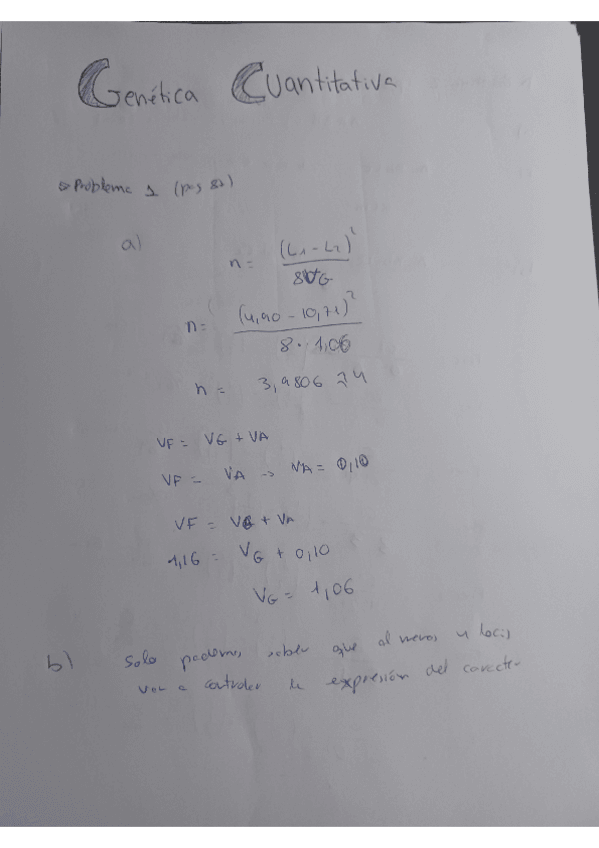 Genética Cuantitativa
Problema 1 (pag 82)
a)
n = (L1 - L2)² / 8VG
n = (4,90 - 10,71)² / 8 · 1,06
n = 3,9806 ≈ 4
VF = VG + VA
VF = VA → VA = 0,10
VF = VG + VA
1,16 = VG + 0,10
VG = 1,06
b) Solo podemos saber que al menos 4 locis
van a controlar la expresión del caracter